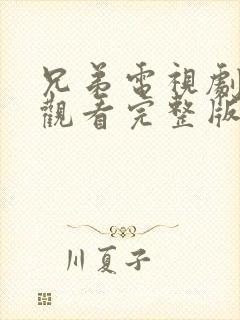 兄弟電視劇
觀看完整版
川夏子